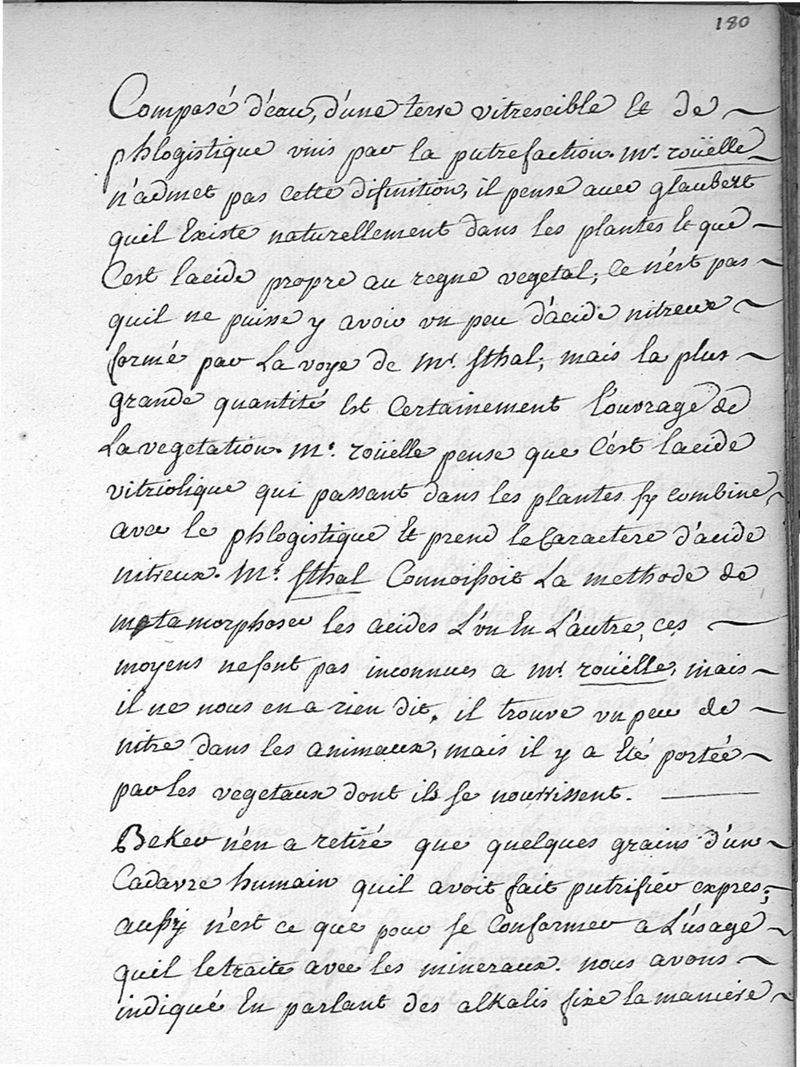 180
Composé d'eau, d'une terre vitrescible Et de
phlogistique unis par la putrefaction. Mr. roüelle
n'admet pas cette difinition, il pense avec glaubert
quil Existe naturellement dans les plantes Et que
C'est lacide propre au regne vegetal; Ce n'est pas
quil ne puisse y avoir un peu d'acide nitreux
formé par La voye de Mr. sthal; mais la plus
grande quantité Est Certainement l'ouvrage de
La vegetation. Mr. roüelle pense que C'est lacide
vitriolique qui passant dans les plantes sy combine
avec le phlogistique Et prend le Caractere d'acide
nitreux. Mr. sthal Connoissoit La methode de
metamorphoser les acides L'un En L'autre, ces
moyens ne sont pas inconnues a Mr. roüelle, mais
il ne nous en a rien dit, il trouve un peu de
nitre dans les animaux, mais il y a Eté portée
par les vegetaux dont ils se nourrissent.
Beker n'en a retiré que quelques grains d'un
Cadavre humain quil avoit fait putrifier expres;
aussy n'est ce que pour se Conformer a L'usage
quil le traite avec les mineraux. nous avons
indiqué En parlant des alkalis fixe la maniere